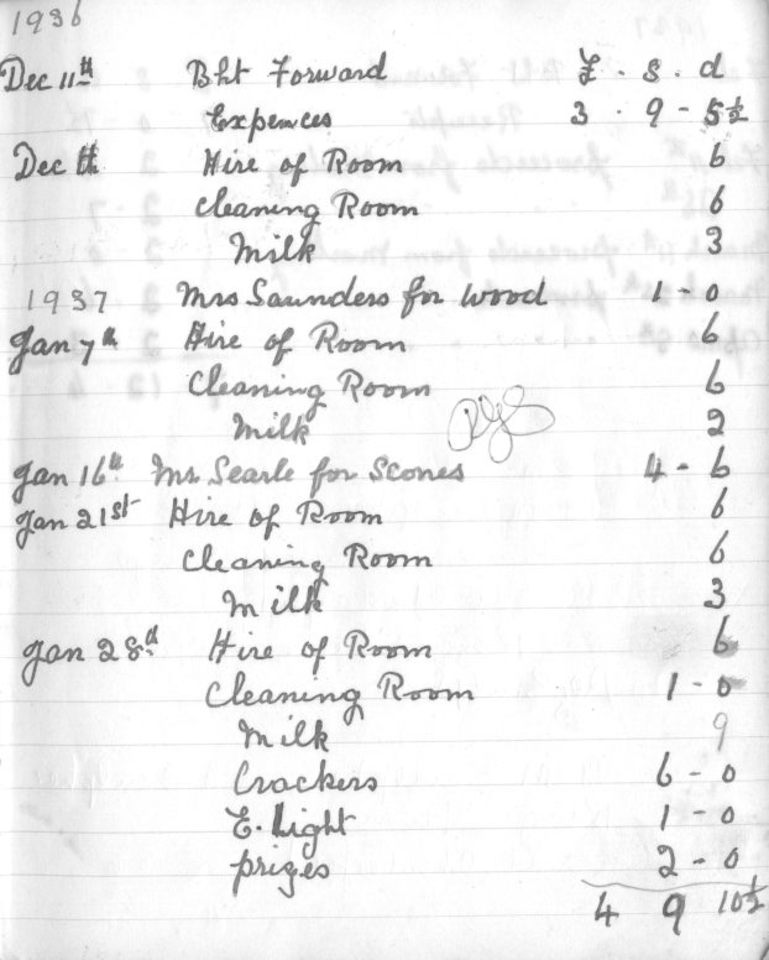 1936
Dec 11th Bht Forward £ . s . d
Expences 3 . 9 - 5½
Dec th Hire of Room 6
Cleaning Room 6
Milk 3
1937 Mrs Saunders for wood 1 - 0
Jan 7th Hire of Room 6
Cleaning Room 6
Milk 2
Jan 16th Mr Searle for Scones 4 - 6
Jan 21st Hire of Room 6
Cleaning Room 6
Milk 3
Jan 28th Hire of Room 6
Cleaning Room 1 - 0
Milk 9
Crackers 6 - 0
E. Light 1 - 0
prizes 2 - 0
4 9 10½